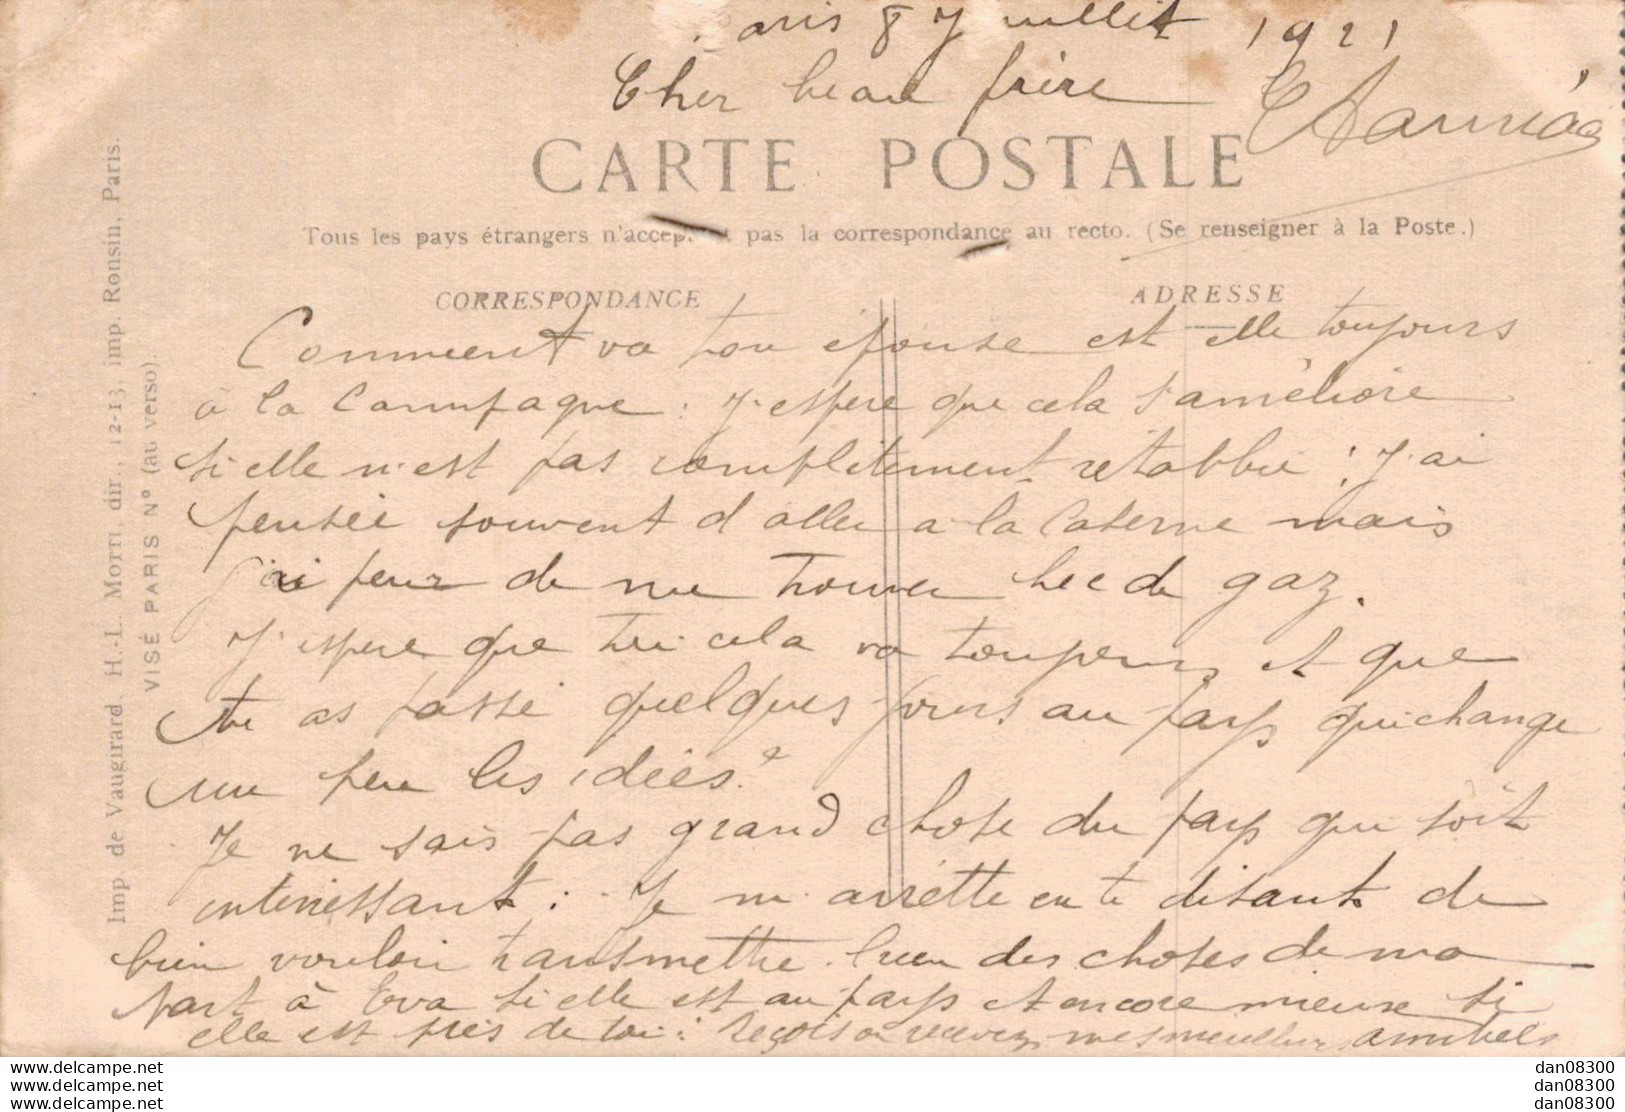 Paris 8 Juillet 1921
Cher beau frère
CARTE POSTALE
Tous les pays étrangers n'acceptent pas la correspondance au recto. (Se renseigner à la Poste.)
CORRESPONDANCE
ADRESSE
Comment va ton épouse est elle toujours
à la Campagne : J'espère que cela s'améliore
si elle n'est pas complitement rétablie : J'ai
pensée souvent d'aller a la Caserne mais
j'ai peur de me trouver bec de gaz.
J'espere que toi cela va toujours et que
tu as passé quelques jours au pays qui change
un peu les idées ?
Je ne sais pas grand chose du pays qui soit
interressant : Je m'arrette en te disant de
bien vouloir transmettre bien des choses de ma
part à Eva si elle est au pays et encore mieux si
elle est près de toi : Reçois ou recevez mes meilleurs amitiels
Imp de Vaugirard, H.-L. Motti, dir., 12-13, imp. Ronsin, Paris.
VISÉ PARIS N° (au verso).
dan08300
dan08300
dan08300
dan08300
dan08300
dan08300